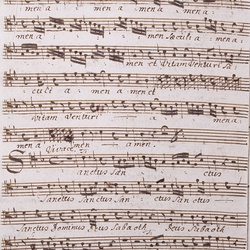 men a men a men a
men a men Sæculi a men a
men et Vitam Venturi Sæ
culi a men a men et
Vitam Venturi a
men a men a men.
Sanctus San ctus
Sanctus Sanctus San ctus San ctus
Sanctus Dominus Deus Sabaoth Deus Sabaoth